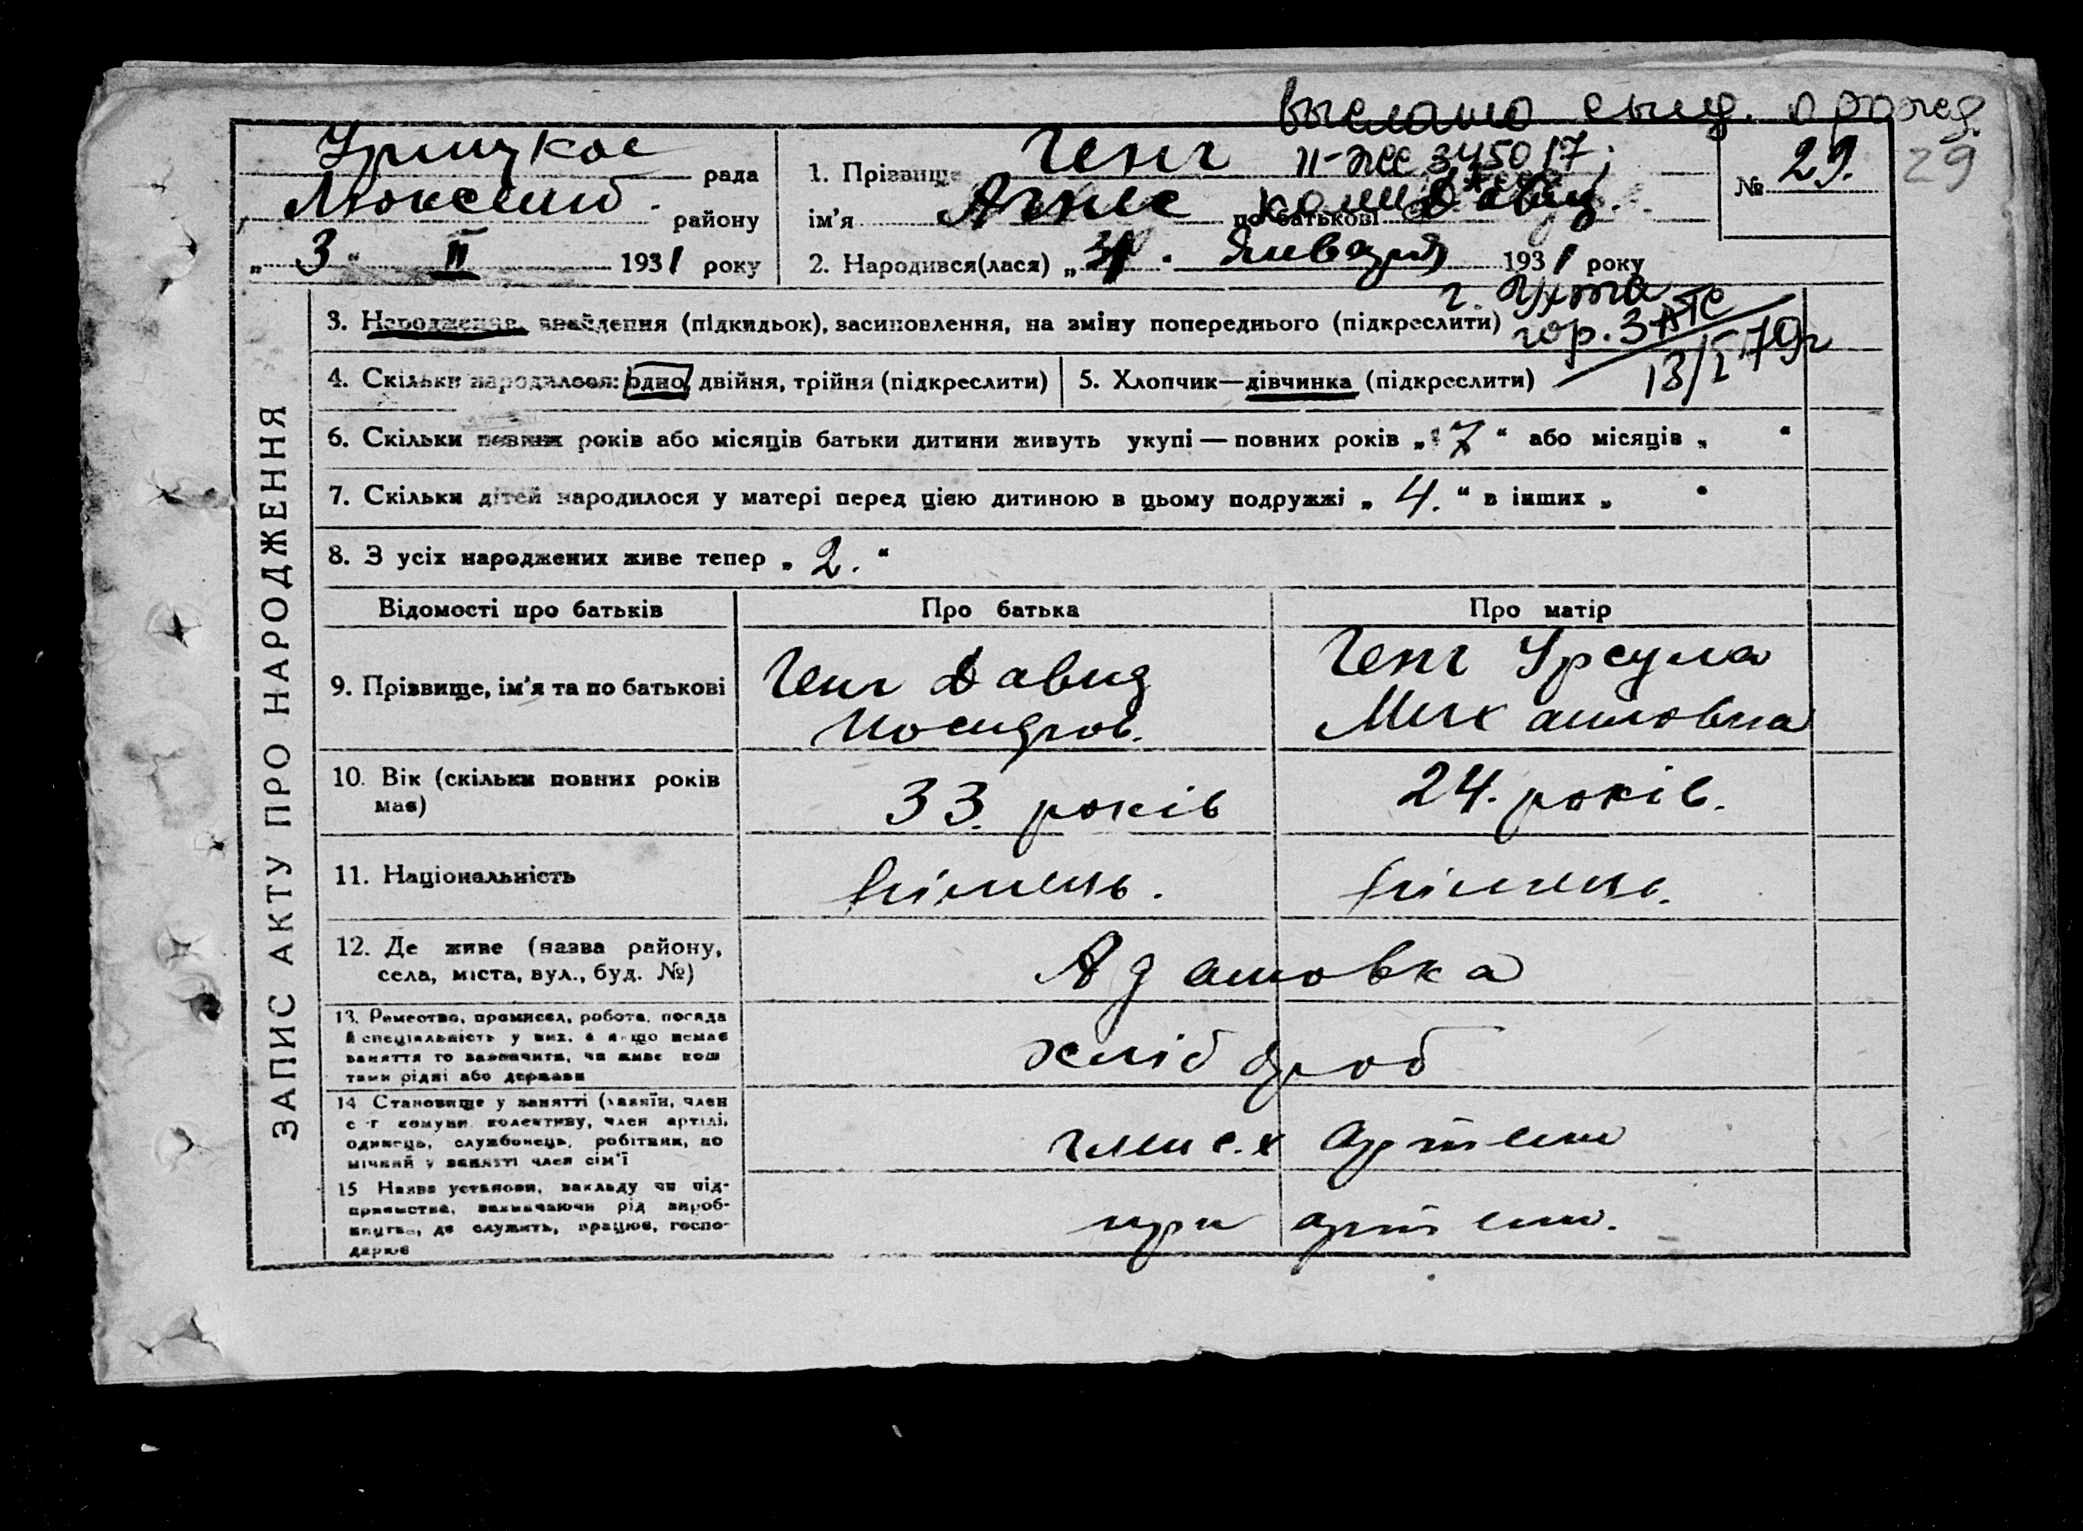 выслано свид. о рожд.
Урицкое рада
Люксемб. району
„ 3 “ II 1931 року
1. Прізвище Генг
II-ЖС 345017;
ім'я Агнес по батькові Давид.
Коми
2. Народився(лася) „31. Января 1931 року
№ 29.
29
г. Ухта
гор. ЗАГС
13/I 79г
ЗАПИС АКТУ ПРО НАРОДЖЕННЯ
3. Народження, знайдення (підкидьок), засиновлення, на зміну попереднього (підкреслити)
4. Скільки народилося: одно, двійня, трійня (підкреслити)
5. Хлопчик—дівчинка (підкреслити)
6. Скільки повних років або місяців батьки дитини живуть укупі — повних років „ 7 “ або місяців „ “
7. Скільки дітей народилося у матері перед цією дитиною в цьому подружжі „ 4. “ в інших „ “
8. З усіх народжених живе тепер „ 2. “
Відомості про батьків Про батька Про матір
9. Прізвище, ім'я та по батькові
Генг Давид
Генг Урсула
Михайловна
10. Вік (скільки повних років
має)
33. років
24. років.
11. Національність
німець.
німець.
12. Де живе (назва району,
села, міста, вул., буд. №)
Адамовка
13. Ремество, промисел, робота, посада
й спеціальність у них, а якщо немає
заняття то зазначити, чи живе кош
тами рідні або держави
хлібороб
14 Становище у занятті (хазяїн, член
с-г комуни колективу, член артілі,
одинець, службовець, робітник, по
мічний у занятті член сім'ї
член с.х артели
15 Назва установи, закладу чи під-
приємства, зазначаючи рід вироб-
ництва, де служить, працює, госпо-
дарює
при артели.